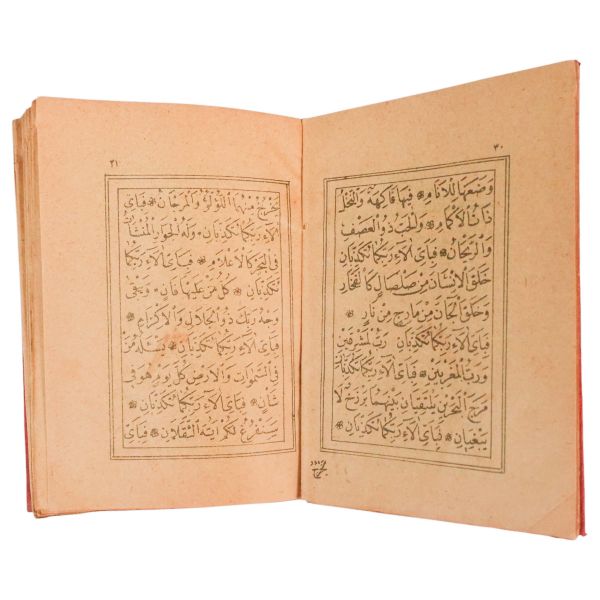 ٣٠
وَضَعَهَا لِلْاَنَامِ ۞ فِيهَا فَاكِهَةٌ وَالنَّخْلُ
ذَاتُ الْاَكْمَامِ ۞ وَالْحَبُّ ذُو الْعَصْفِ
وَالرَّيْحَانُ ۞ فَبِاَيِّ اٰلَاءِ رَبِّكُمَا تُكَذِّبَانِ
خَلَقَ الْاِنْسَانَ مِنْ صَلْصَالٍ كَالْفَخَّارِ
وَخَلَقَ الْجَانَّ مِنْ مَارِجٍ مِنْ نَارٍ ۞
فَبِاَيِّ اٰلَاءِ رَبِّكُمَا تُكَذِّبَانِ رَبُّ الْمَشْرِقَيْنِ
وَرَبُّ الْمَغْرِبَيْنِ ۞ فَبِاَيِّ اٰلَاءِ رَبِّكُمَا تُكَذِّبَانِ
مَرَجَ الْبَحْرَيْنِ يَلْتَقِيَانِ بَيْنَهُمَا بَرْزَخٌ لَا
يَبْغِيَانِ ۞ فَبِاَيِّ اٰلَاءِ رَبِّكُمَا تُكَذِّبَانِ
يخرج
٣١
يَخْرُجُ مِنْهُمَا اللُّؤْلُؤُ وَالْمَرْجَانُ ۞ فَبِاَيِّ
اٰلَاءِ رَبِّكُمَا تُكَذِّبَانِ ۞ وَلَهُ الْجَوَارِ الْمُنْشَاٰتُ
فِى الْبَحْرِ كَالْاَعْلَامِ ۞ فَبِاَيِّ اٰلَاءِ رَبِّكُمَا
تُكَذِّبَانِ ۞ كُلُّ مَنْ عَلَيْهَا فَانٍ ۞ وَيَبْقٰى
وَجْهُ رَبِّكَ ذُو الْجَلَالِ وَالْاِكْرَامِ ۞
فَبِاَيِّ اٰلَاءِ رَبِّكُمَا تُكَذِّبَانِ ۞ يَسْـَٔلُهُ مَنْ
فِى السَّمٰوَاتِ وَالْاَرْضِ كُلَّ يَوْمٍ هُوَ فِى
شَاْنٍ ۞ فَبِاَيِّ اٰلَاءِ رَبِّكُمَا تُكَذِّبَانِ ۞
سَنَفْرُغُ لَكُمْ اَيُّهَ الثَّقَلَانِ ۞ فَبِاَيِّ